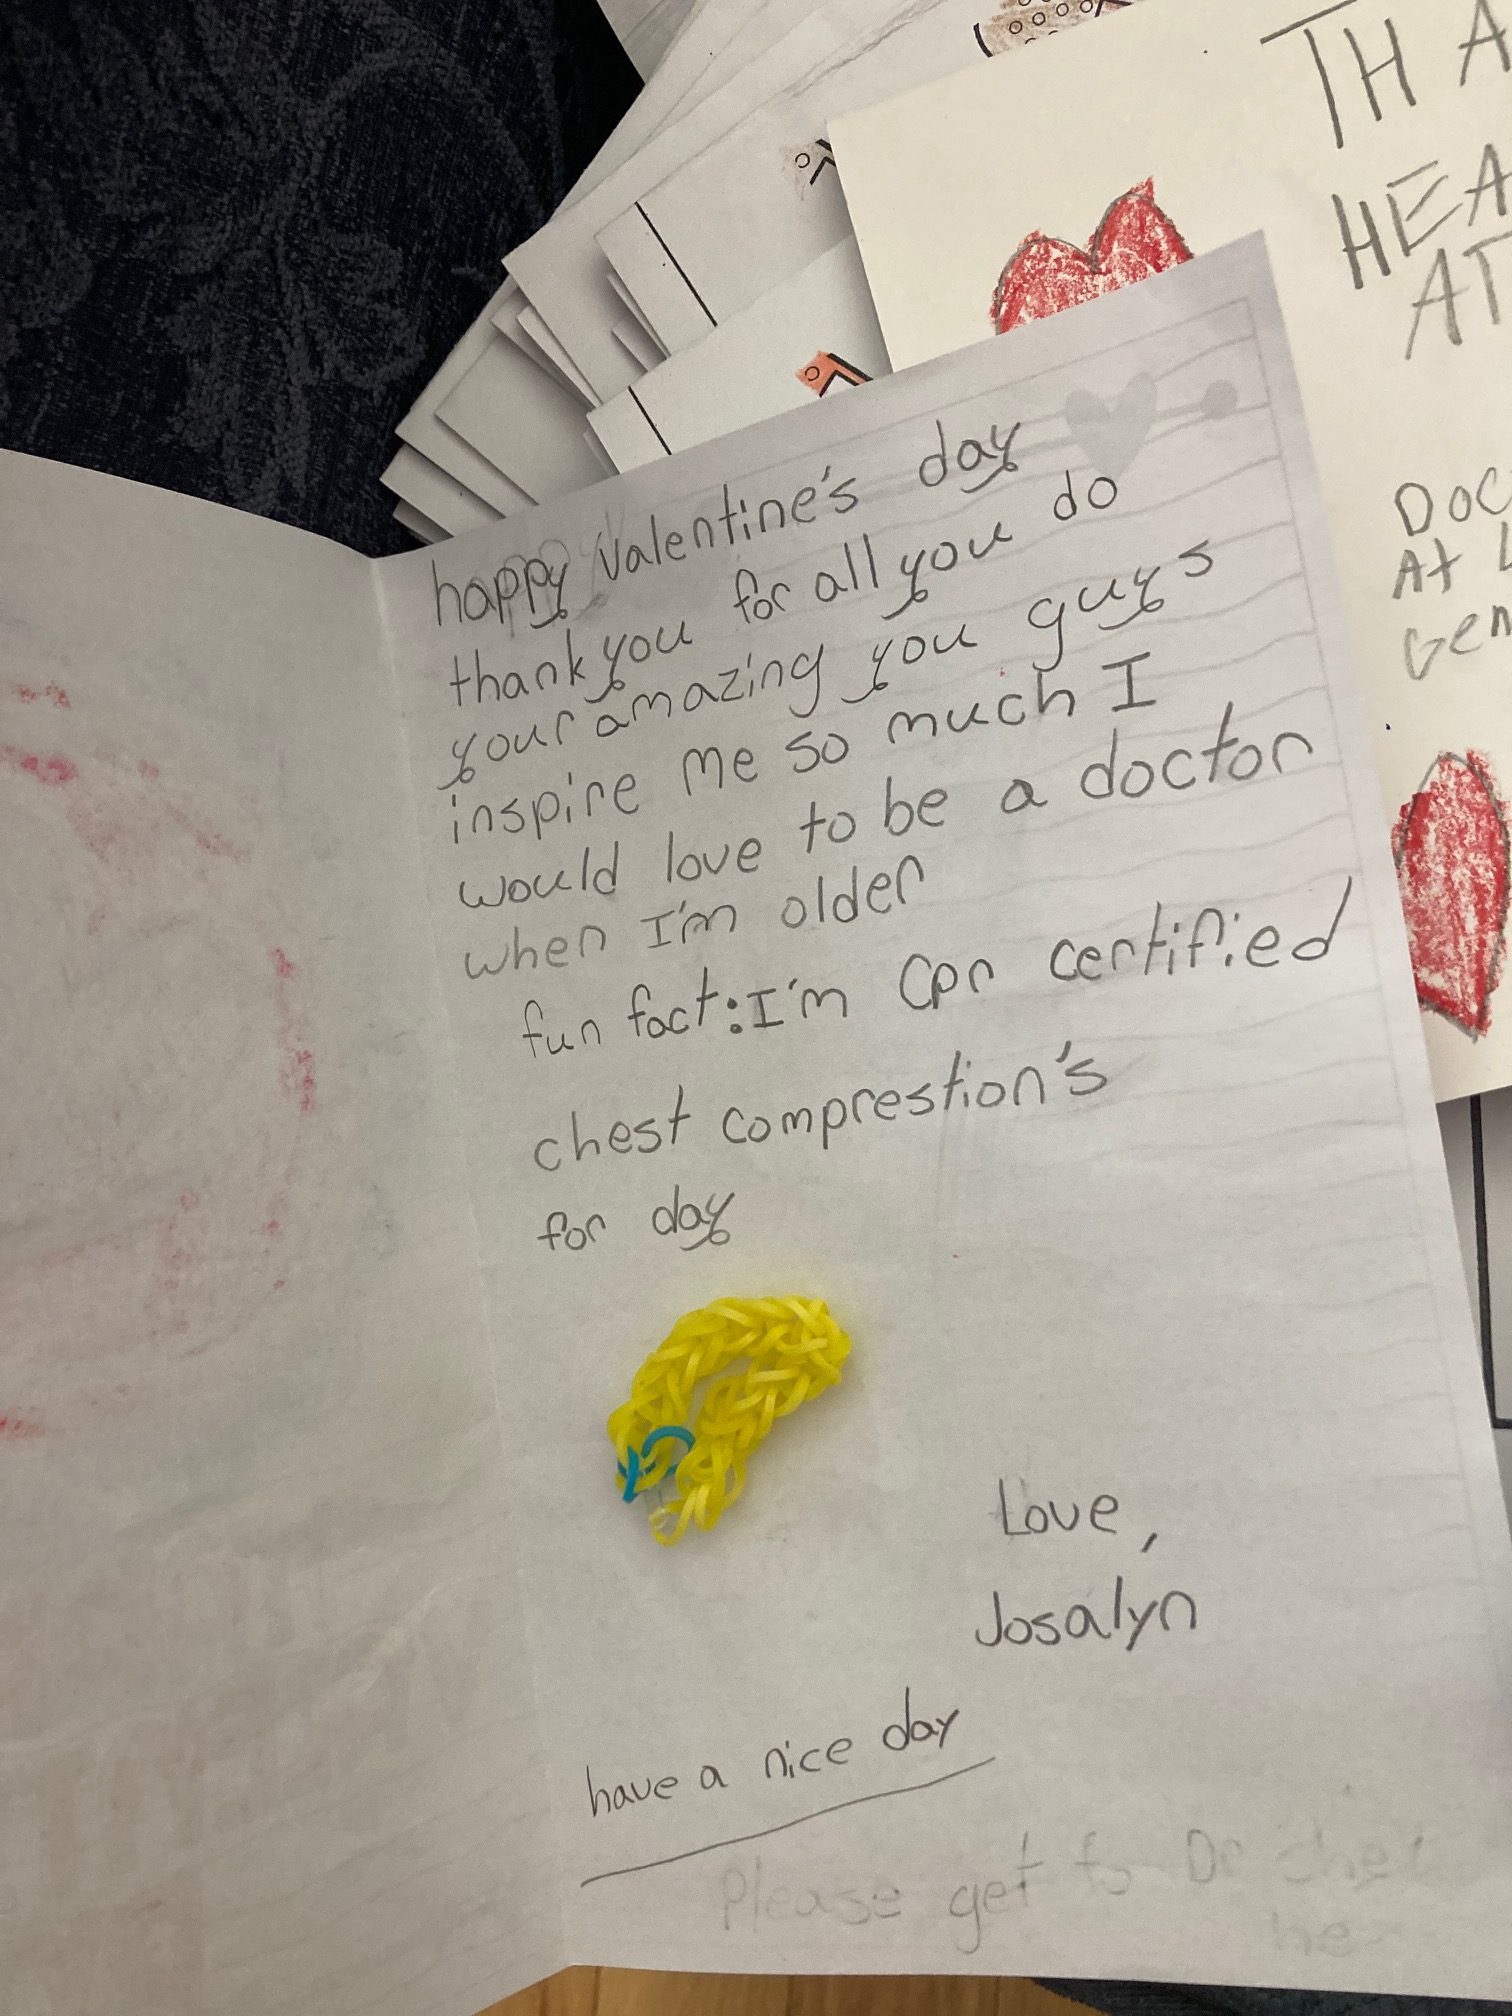 happy Valentine's day
thank you for all you do
your amazing you guys
inspire me so much I
would love to be a doctor
when I'm older
fun fact: I'm Cpr certified
chest comprestion's
for day
Love,
Josalyn
have a nice day
Please get to Dr
THA
HEA
AT
DOC
At L
Gen